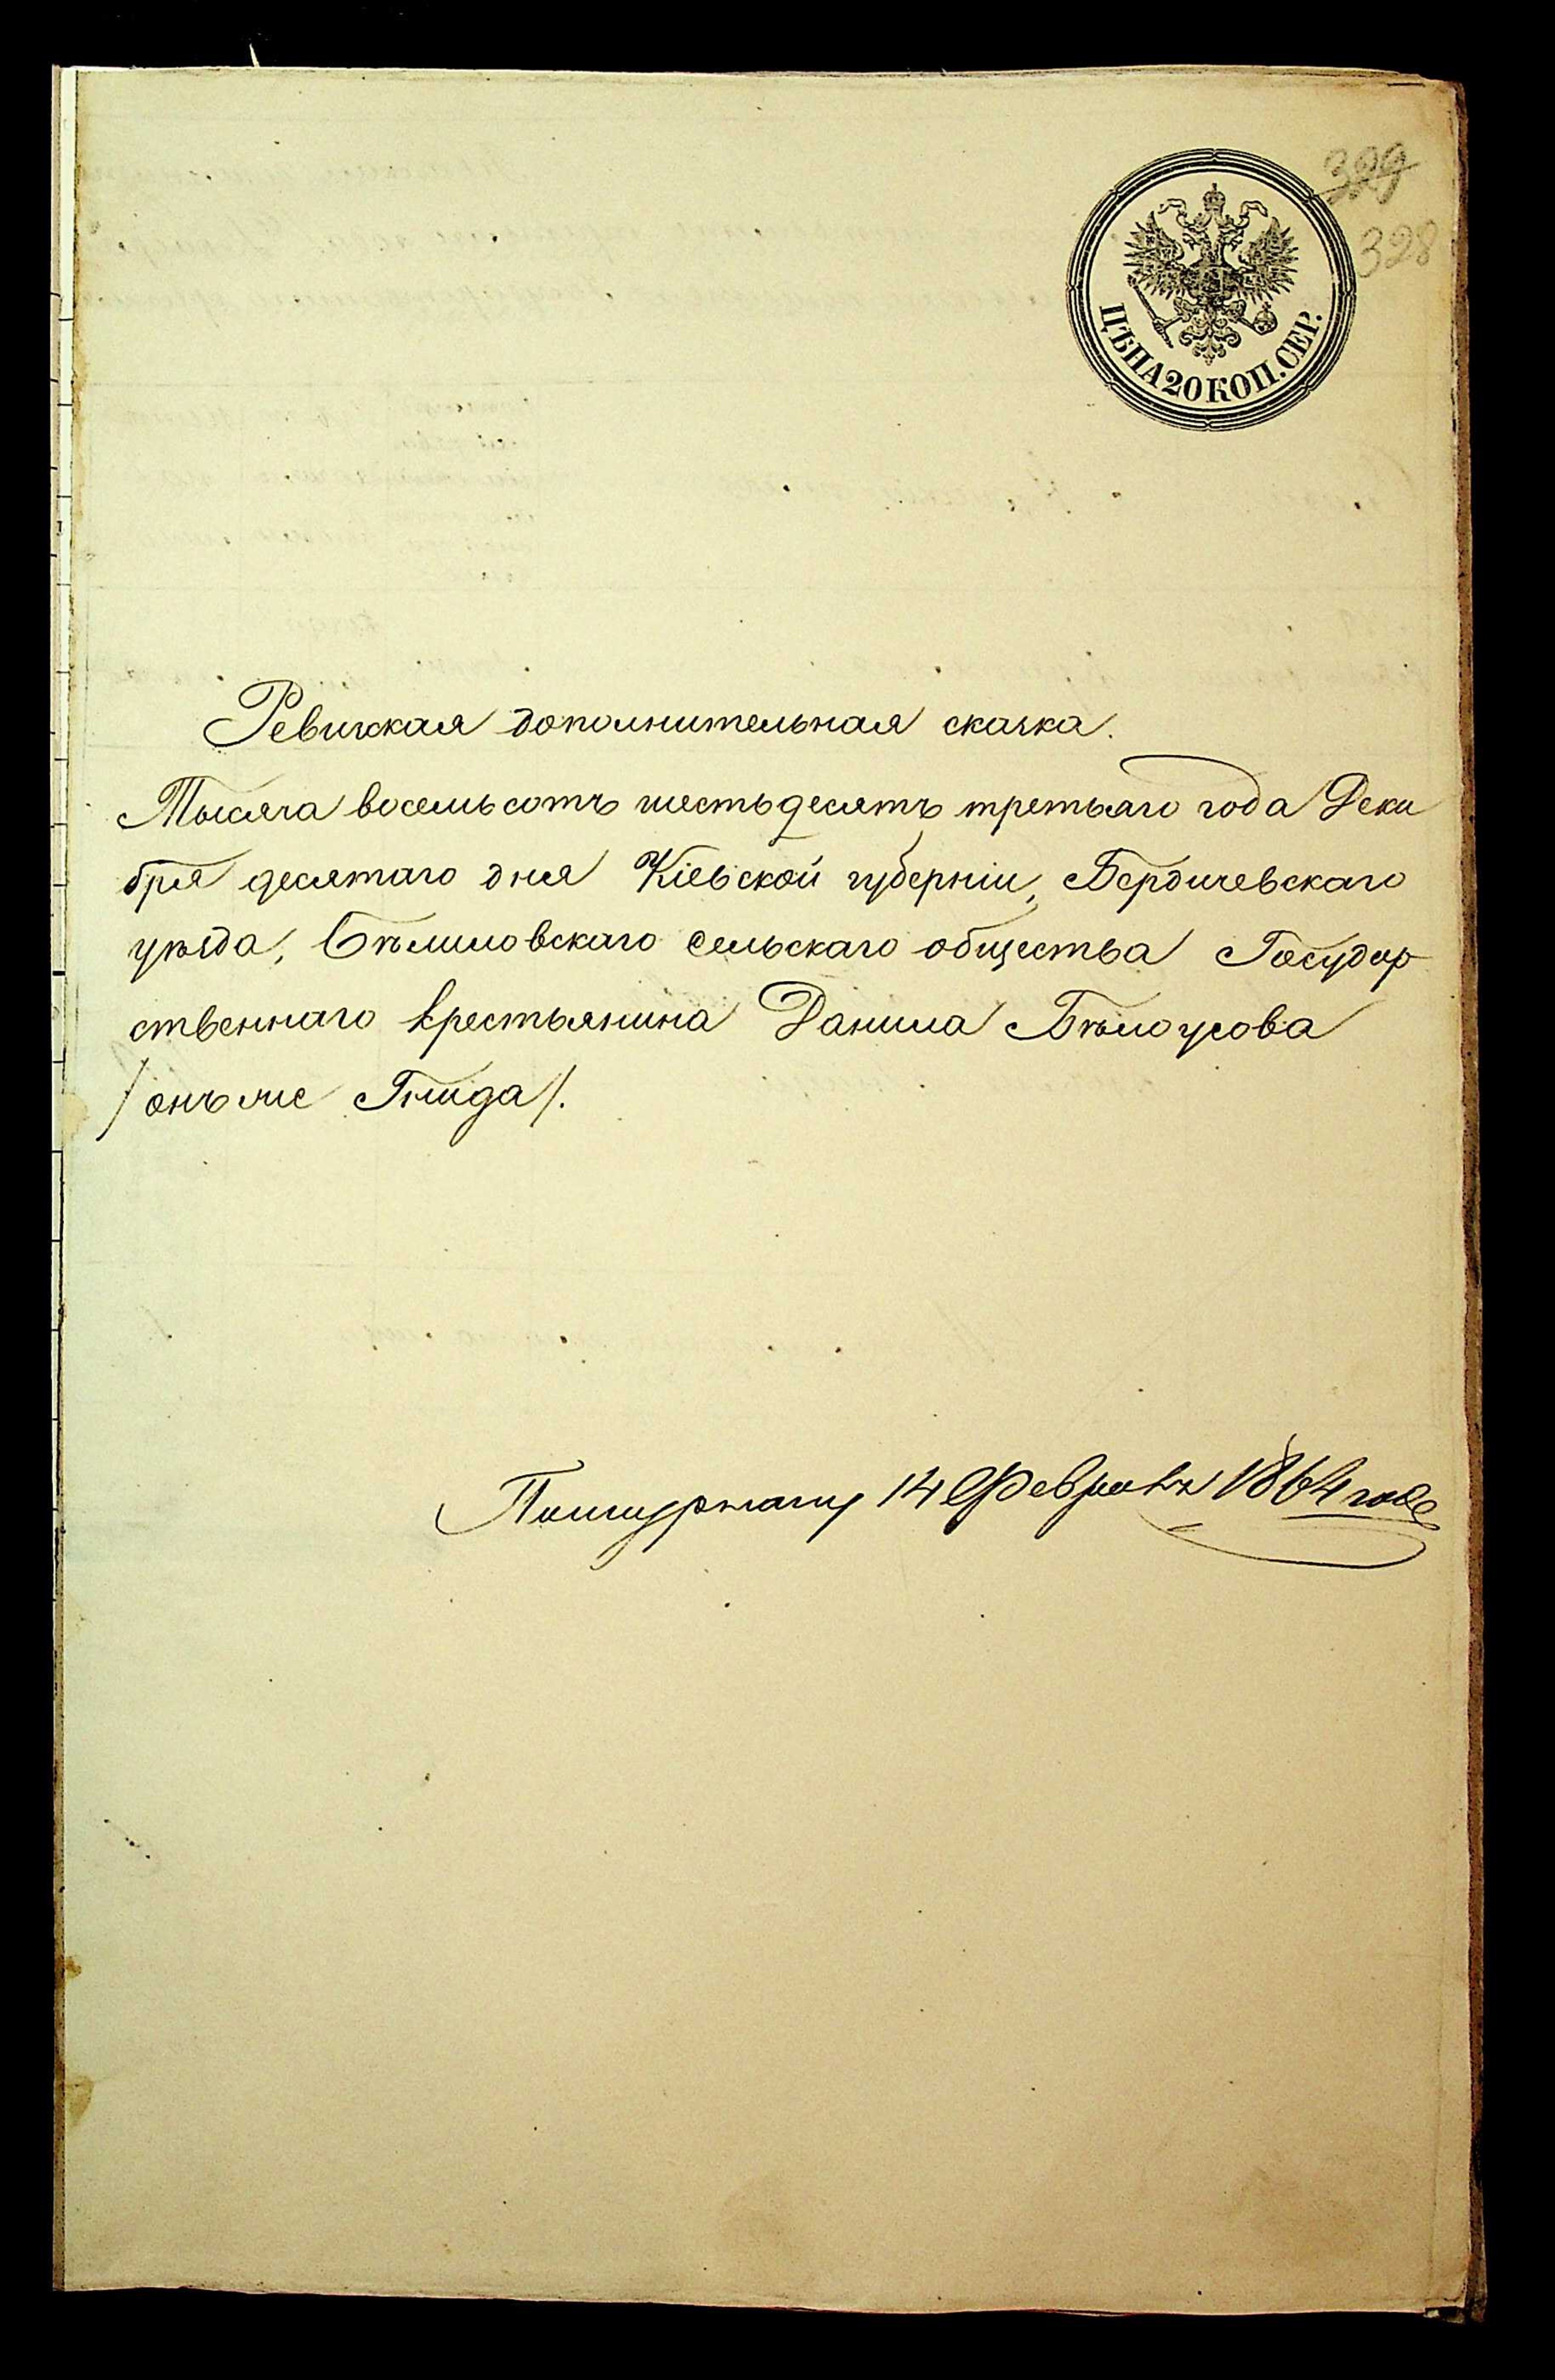 329
328
ЦѢНА 20 КОП. СЕР.
Ревизкая дополнительная сказка.
Тысяча восемьсотъ шестьдесятъ третьяго года Дека
бря десятаго дня Кіевской губерніи, Бердичевскаго
уѣзда, Бѣлиловскаго сельскаго общества Государ
ственнаго крестьянина Данила Бѣлоусова
/онъ же Гнида/.
14 Февраля 1864 года